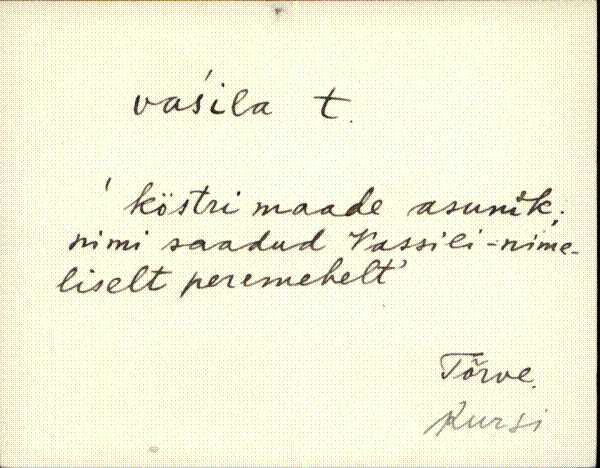 vaśila t.
' köstri maade asunik,
nimi saadud Vassili-nime-
liselt peremehelt'
Tõrve.
Kursi